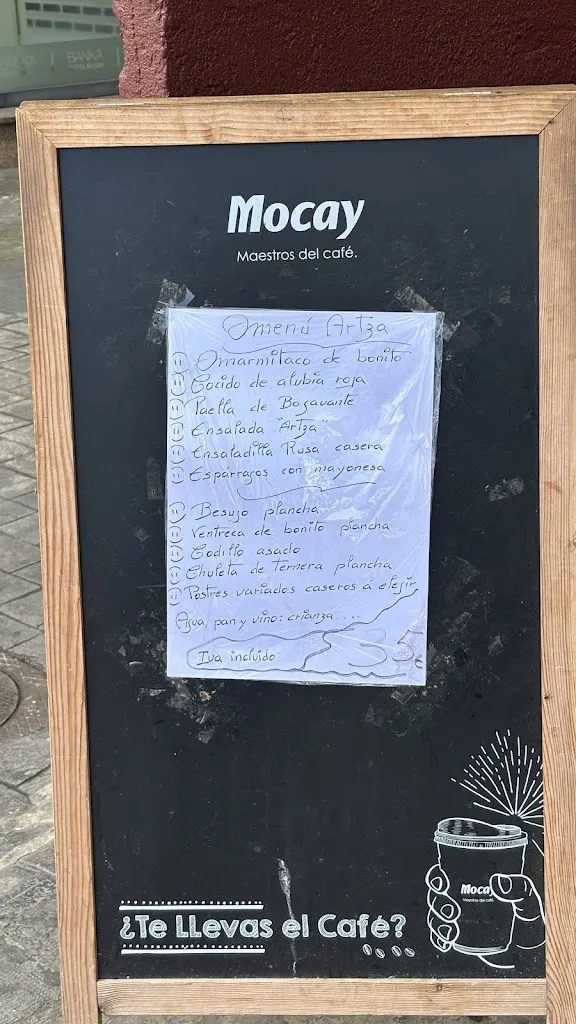 BANKA
Mocay
Maestros del café.
Menú Artza
Marmitaco de bonito
Cocido de alubia roja
Paella de Bogavante
Ensalada "Artza"
Ensaladilla Rusa casera
Espárragos con mayonesa
Besujo plancha
Ventreca de bonito plancha
Codillo asado
Chuleta de ternera plancha
Postres variados caseros a elejir
Agua, pan y vino: crianza....
Iva incluido 35€
Mocay
Maestros del café
¿Te LLevas el Café?